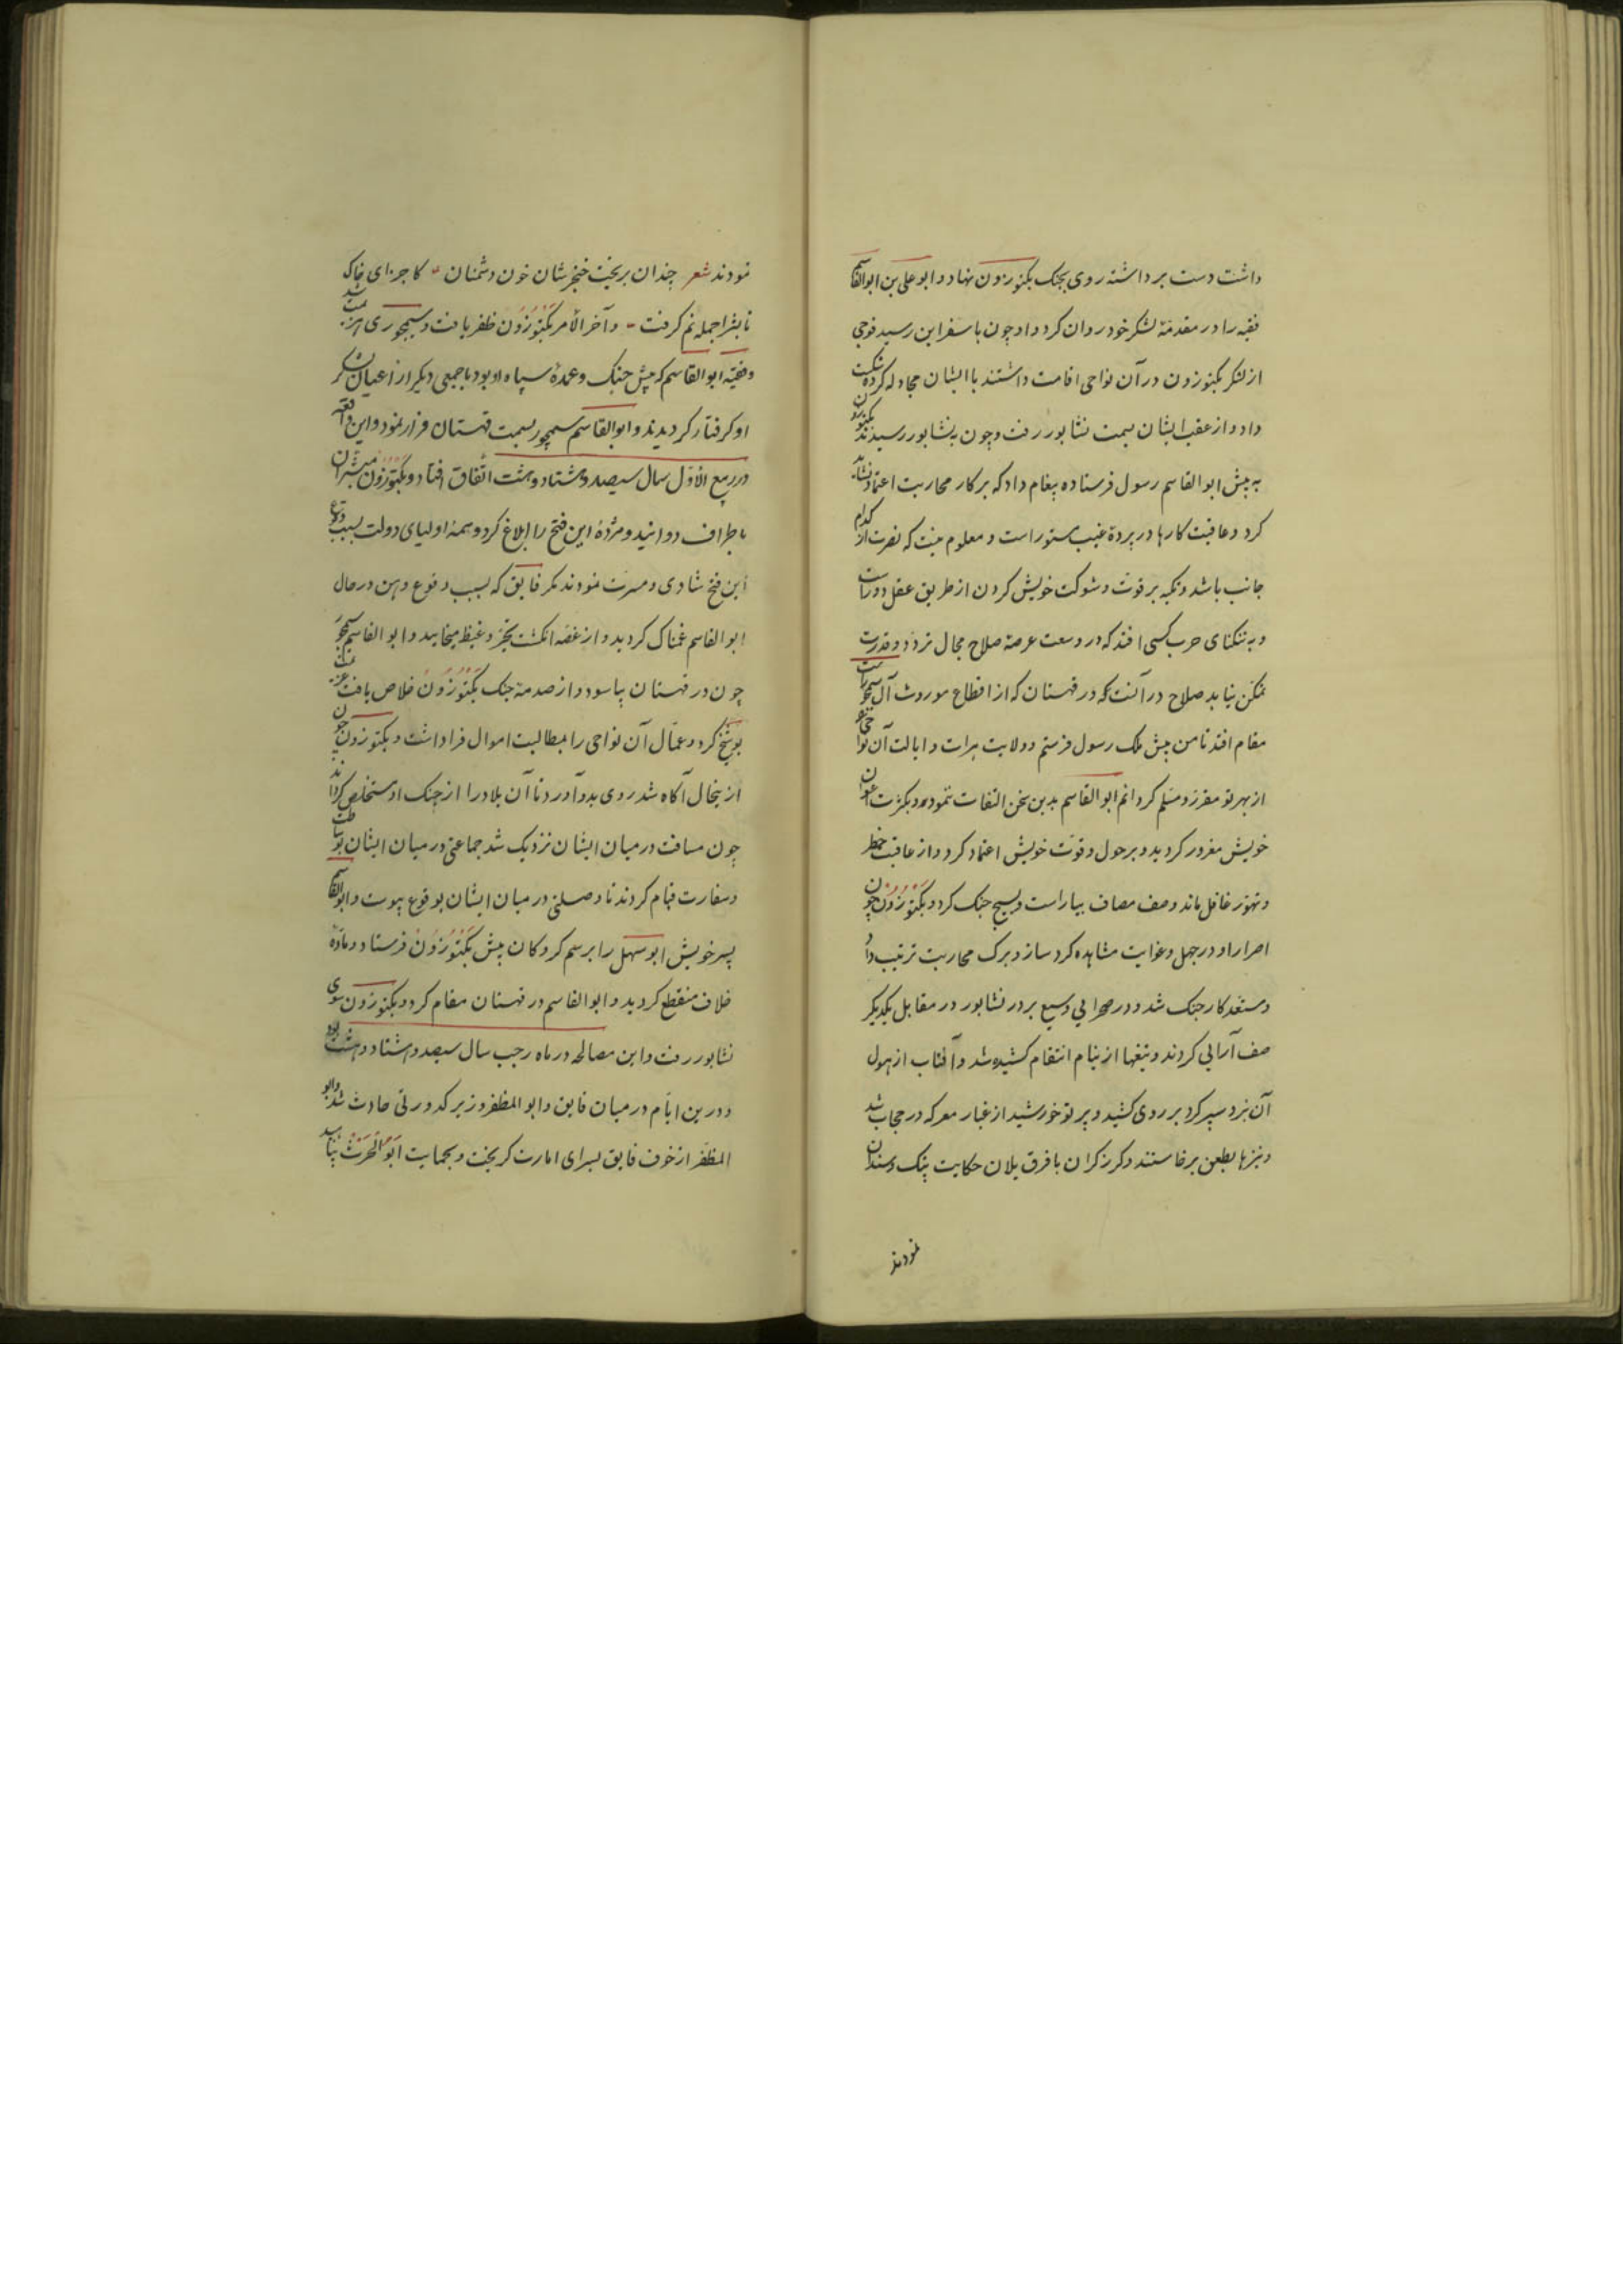 داشت دست برداشته روی بجنک بکتوزون نهاد و ابو علی بن ابو القاسم
فقیه را در مقدمهٔ لشکر خود روان کرد و او چون باسفراین رسید فوجی
از لشکر بکتوزون در آن نواحی اقامت داشتند با ایشان مجادله کرده شکست
داد و از عقب ایشان بسمت نشابور رفت و چون بنشابور رسیدند بکتوزون
به پیش ابو القاسم رسول فرستاده پیغام داد که بر کار محاربت اعتماد نشاید
کرد و عاقبت کارها در پردهٔ غیب مستور است و معلوم نیست که نصرت از کدام
جانب باشد و تکیه بر قوت و شوکت خویش کردن از طریق عقل دور است
و به تنکنای حرب کسی افتد که در وسعت عرصهٔ صلاح مجال تردد و قدرت
تمکن نیابد صلاح در آنست که در قهستان که از اقطاع موروث آل سیمجور است
مقام افتد تا من پیش ملک رسول فرستم و ولایت هرات و ایالت آن نواحی
از بهر تو مقرر و مسلم کردانم ابو القاسم بدین سخن التفات ننموده و بکثرت اعوان
خویش مغرور کردید و بر حول و قوت خویش اعتماد کرد و از عاقبت خطر
و تهور غافل ماند و صف مصاف بیاراست و بسیج جنک کرد و بکتوزون چون
اصرار او در جهل و غوایت مشاهده کرد ساز و برک محاربت ترتیب داد
و مستعد کار جنک شد و در صحرایی وسیع بر در نشابور در مقابل یکدیکر
صف آرایی کردند و تیغها از نیام انتقام کشیده شد و آفتاب از هول
آن نبرد سپر کرد بر روی کشید و پرتو خورشید از غبار معرکه در حجاب شد
و نیزها بطعن برخاستند و کرز کران با فرق یلان حکایت پتک و سندان
نمودند
نمودند شعر چندان بریخت خنجرشان خون دشمنان کاجزای خاک
تا بثرا جمله نم کرفت و آخر الأمر بکتوزون ظفر یافت و سیمجوری هزیمت شد
و فقیه ابو القاسم که پیش جنک و عمدهٔ سپاه او بود با جمعی دیکر از اعیان لشکر
او کرفتار کردیدند و ابو القاسم سیمجور بسمت قهستان فرار نمود و این واقعه
در ربیع الأول سال سیصد و هشتاد و هشت اتفاق افتاد و بکتوزون مبشران
باطراف دوانید و مژدهٔ این فتح را ابلاغ کرد و همه اولیای دولت بسبب وقوع
این فتح شادی و مسرت نمودند مکر فایق که بسبب وقوع وهن در حال
ابو القاسم غمناک کردید و از غصه انکشت تحیر و غیظ میخایید و ابو القاسم سیمجور
چون در قهستان بیاسود و از صدمهٔ جنک بکتوزون خلاص یافت عزیمت
بوشنج کرد و عمال آن نواحی را بمطالبت اموال فرا داشت و بکتوزون چون
ازینحال آکاه شد روی بدو آورد تا آن بلاد را از چنک او مستخلص کرداند
چون مسافت در میان ایشان نزدیک شد جماعتی در میان ایشان بوساطت
و سفارت قیام کردند تا و صلحی در میان ایشان بوقوع پیوست و ابو القاسم
پسر خویش ابو سهل را برسم کروکان پیش بکتوزون فرستاد و مادهٔ
خلاف منقطع کردید و ابو القاسم در قهستان مقام کرد و بکتوزون سوی
نشابور رفت و این مصالحه در ماه رجب سال سیصد و هشتاد و هشت بود
و درین ایام در میان فایق و ابو المظفر وزیر کدورتی حادث شد و ابو
المظفر از خوف فایق بسرای امارت کریخت و بحمایت ابو الحرث پناهید